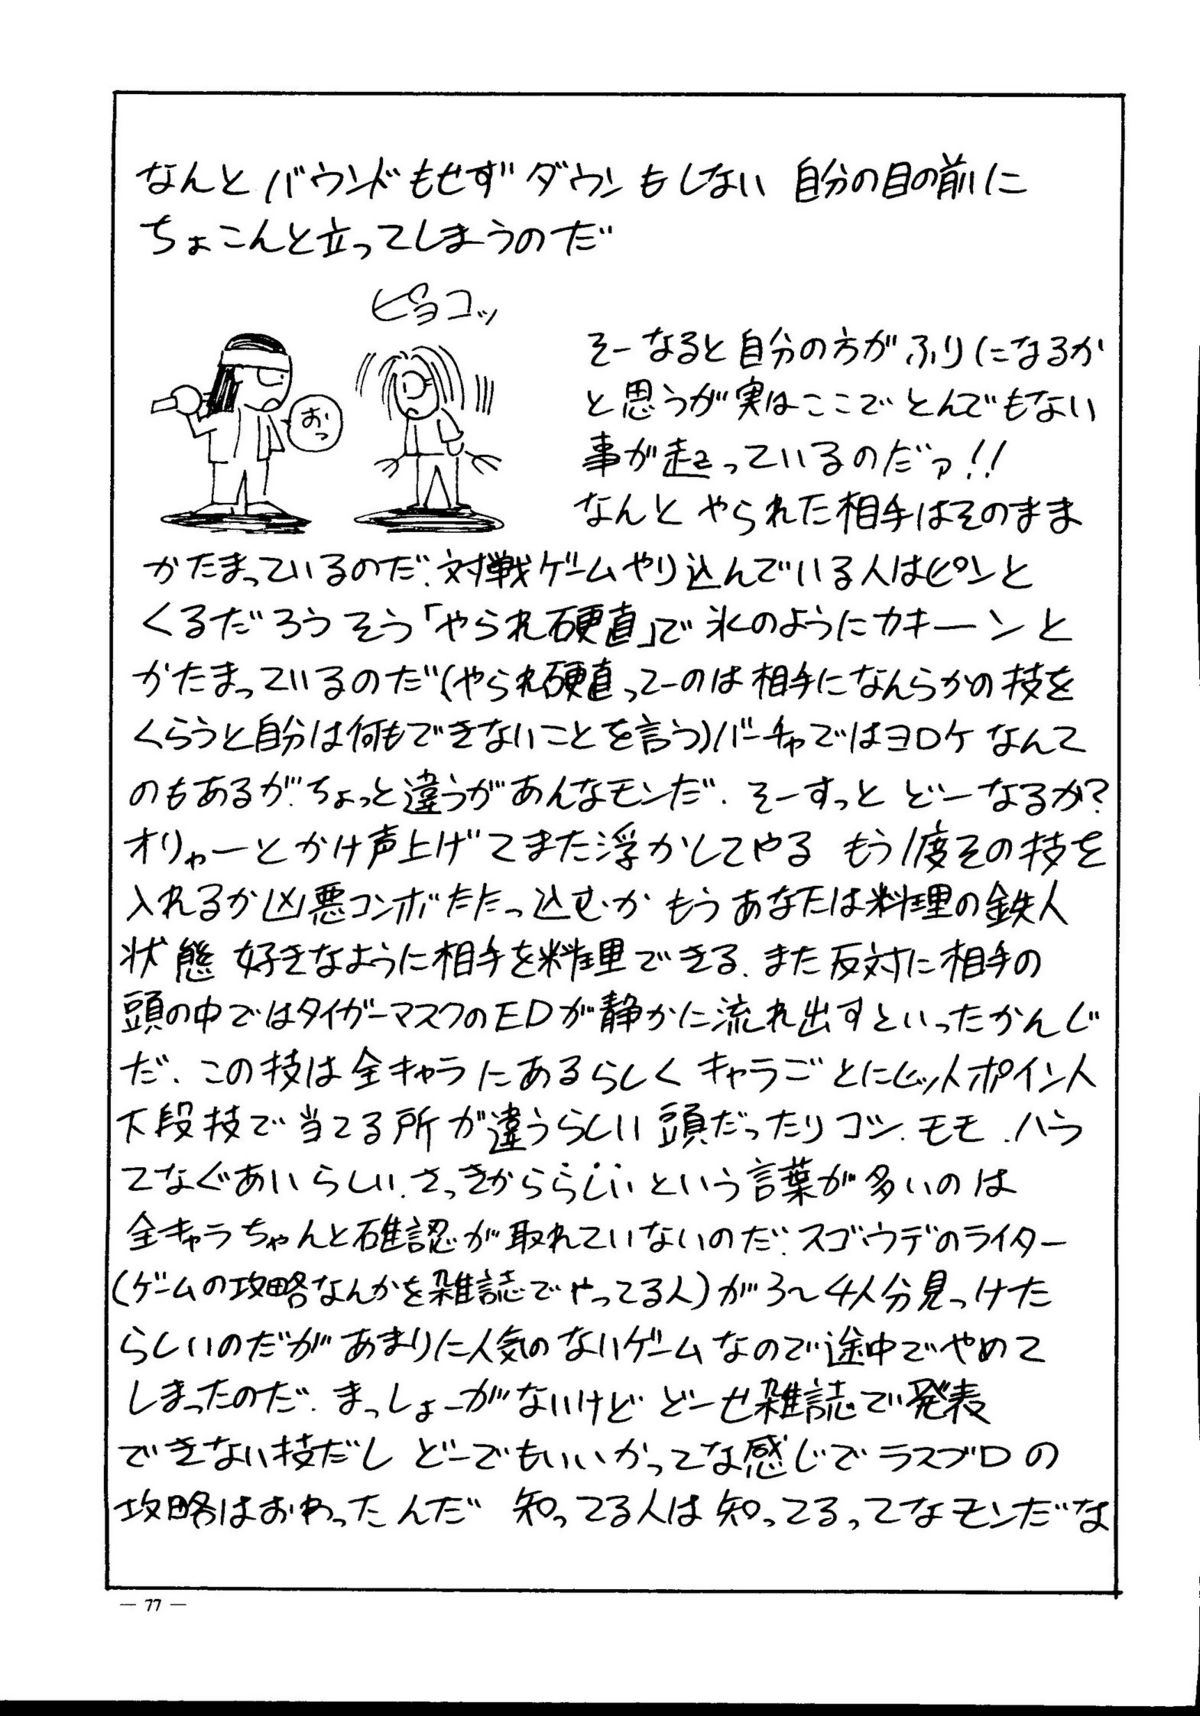 なんと バウンドもせずダウンもしない 自分の目の前に
ちょこんと立ってしまうのだ
ピョコッ
おっ
そーなると自分の方がふりになるか
と思うが実はここでとんでもない
事が起っているのだァ!!
なんと やられた相手はそのまま
かたまっているのだ、対戦ゲームやり込んでいる人はピンと
くるだろう そう「やられ硬直」で 氷のようにカキーンと
かたまっているのだ(やられ硬直ってーのは相手になんらかの技を
くらうと自分は何もできないことを言う)バーチャではヨロケなんて
のもあるが、ちょっと違うがあんなモンだ、そーすっと どーなるか?
オリャーとかけ声上げてまた浮かしてやる もう1度その技を
入れるか凶悪コンボたたっ込むか もうあなたは料理の鉄人
状態 好きなように相手を料理できる、また反対に相手の
頭の中ではタイガーマスクのEDが静かに流れ出すといったかんじ
だ、この技は全キャラにあるらしく キャラごとにヒットポイント人
下段技で当てる所が違うらしい 頭だったりコシ、モモ、ハラ
てなぐあいらしい、さっきかららしいという言葉が多いのは
全キャラちゃんと確認が取れていないのだ、スゴウデのライター
(ゲームの攻略なんかを雑誌でやってる人)が3〜4人分見っけた
らしいのだがあまりに人気のないゲームなので途中でやめて
しまったのだ、まっしょーがないけど どーせ雑誌で発表
できない技だし どーでもいいかってな感じで ラスブロの
攻略はおわったんだ 知ってる人は知ってるってなモンだな
— 77 —